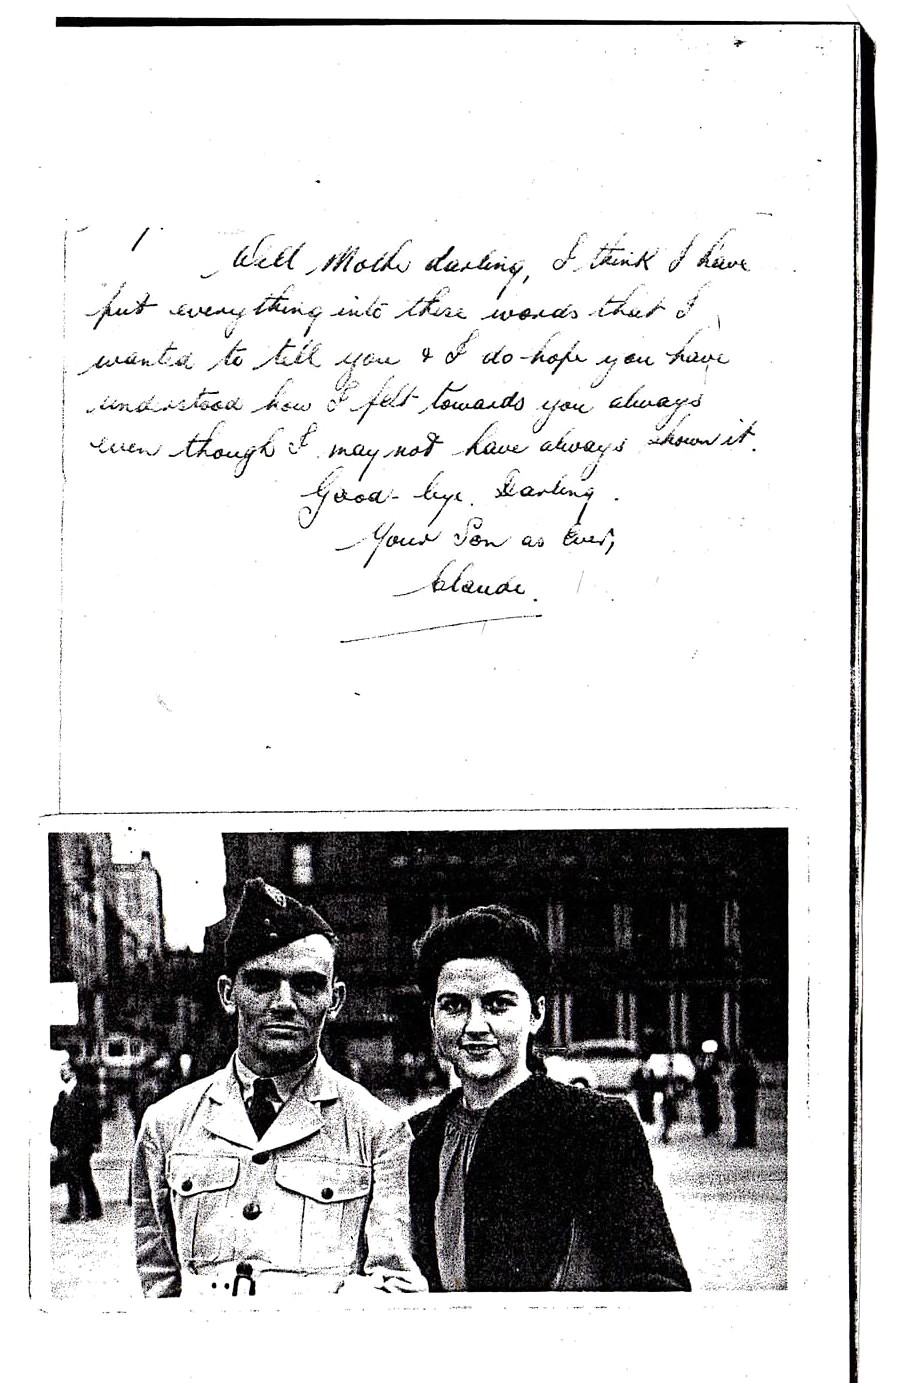 Well Mother darling, I think I have
put everything into these words that I
wanted to tell you & I do hope you have
understood how I felt towards you always
even though I may not have always shown it.
Good-bye. Darling.
Your Son as Ever,
Claude.